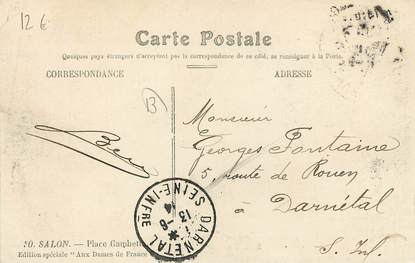 12 €
Carte Postale
Quelques pays étrangers n'acceptent pas la correspondance de ce côté, se renseigner à la Poste.
CORRESPONDANCE
ADRESSE
B
Monsieur
Georges Fontaine
5, route de Rouen
à
Darnétal
S. Inf.
DARNÉTAL
13 - 6
14
SEINE-INFRE
10. SALON. — Place Gambetta
Edition spéciale "Aux Dames de France